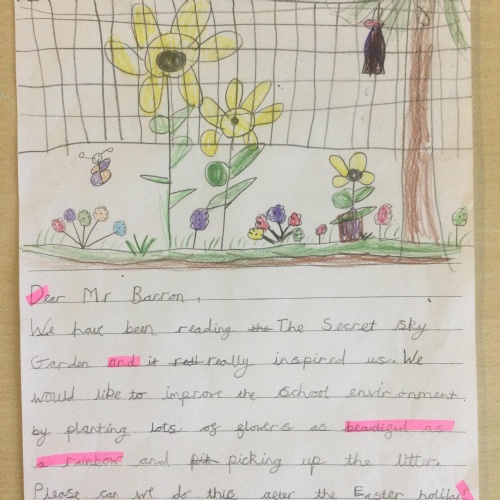 Dear Mr Barron,
We have been reading the The Secret sky
Garden and it really inspired us. We
would like to improve the school environment
by planting lots of flowers as beautiful as
a rainbow and picking up the litter.
Please can we do this after the Easter